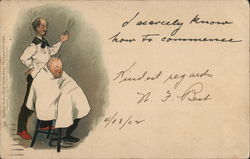 I scarcely know
how to commence
Kindest regards
N. F. Best
4/03/02